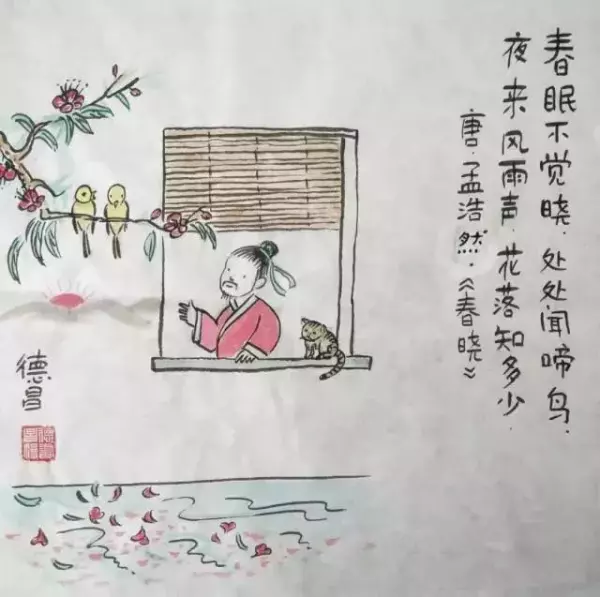 春眠不觉晓.处处闻啼鸟.
夜来风雨声.花落知多少.
唐.孟浩然.《春晓》
德昌